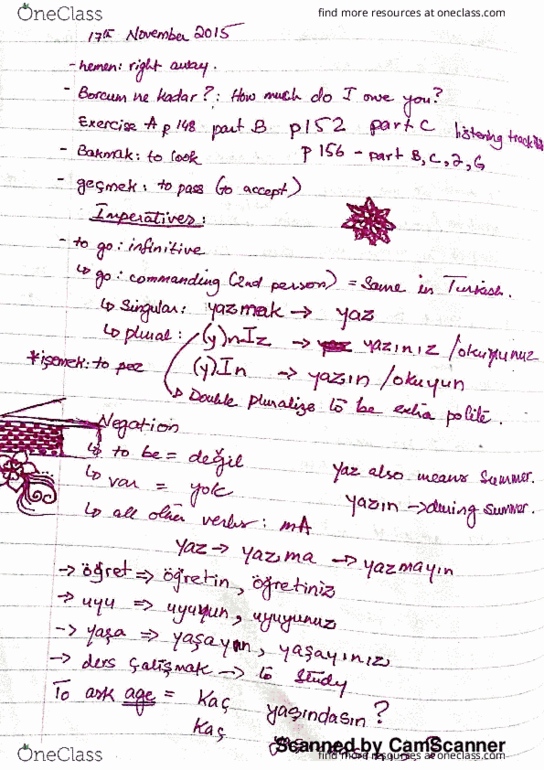 OneClass
find more resources at oneclass.com
17th November 2015
- hemen: right away.
- Borcum ne kadar?: How much do I owe you?
Exercise A p 148 part B p152 part C listening track
- Bakmak: to look p 156 - part B, C, 2, G
- geçmek: to pass (to accept)
Imperatives:
- to go: infinitive
↳ go: commanding (2nd person) = Same in Turkish.
↳ Singular: yazmak → yaz
↳ plural: (y)nIz → yazınız /okuyunuz
*işemek: to pee (y)In → yazın /okuyun
↳ Double pluralize to be extra polite.
Negation
↳ to be = değil yaz also means summer.
↳ var = yok yazın → during summer.
↳ all other verbs: mA
yaz → yazma → yazmayın
→ öğret ⇒ öğretin, öğretiniz
→ uyu ⇒ uyuyun, uyuyunuz
→ yaşa ⇒ yaşayın, yaşayınız
→ ders çalışmak → to study
To ask age = Kaç yaşındasın?
Kaç
OneClass
Scanned by CamScanner
find more resources at oneclass.com